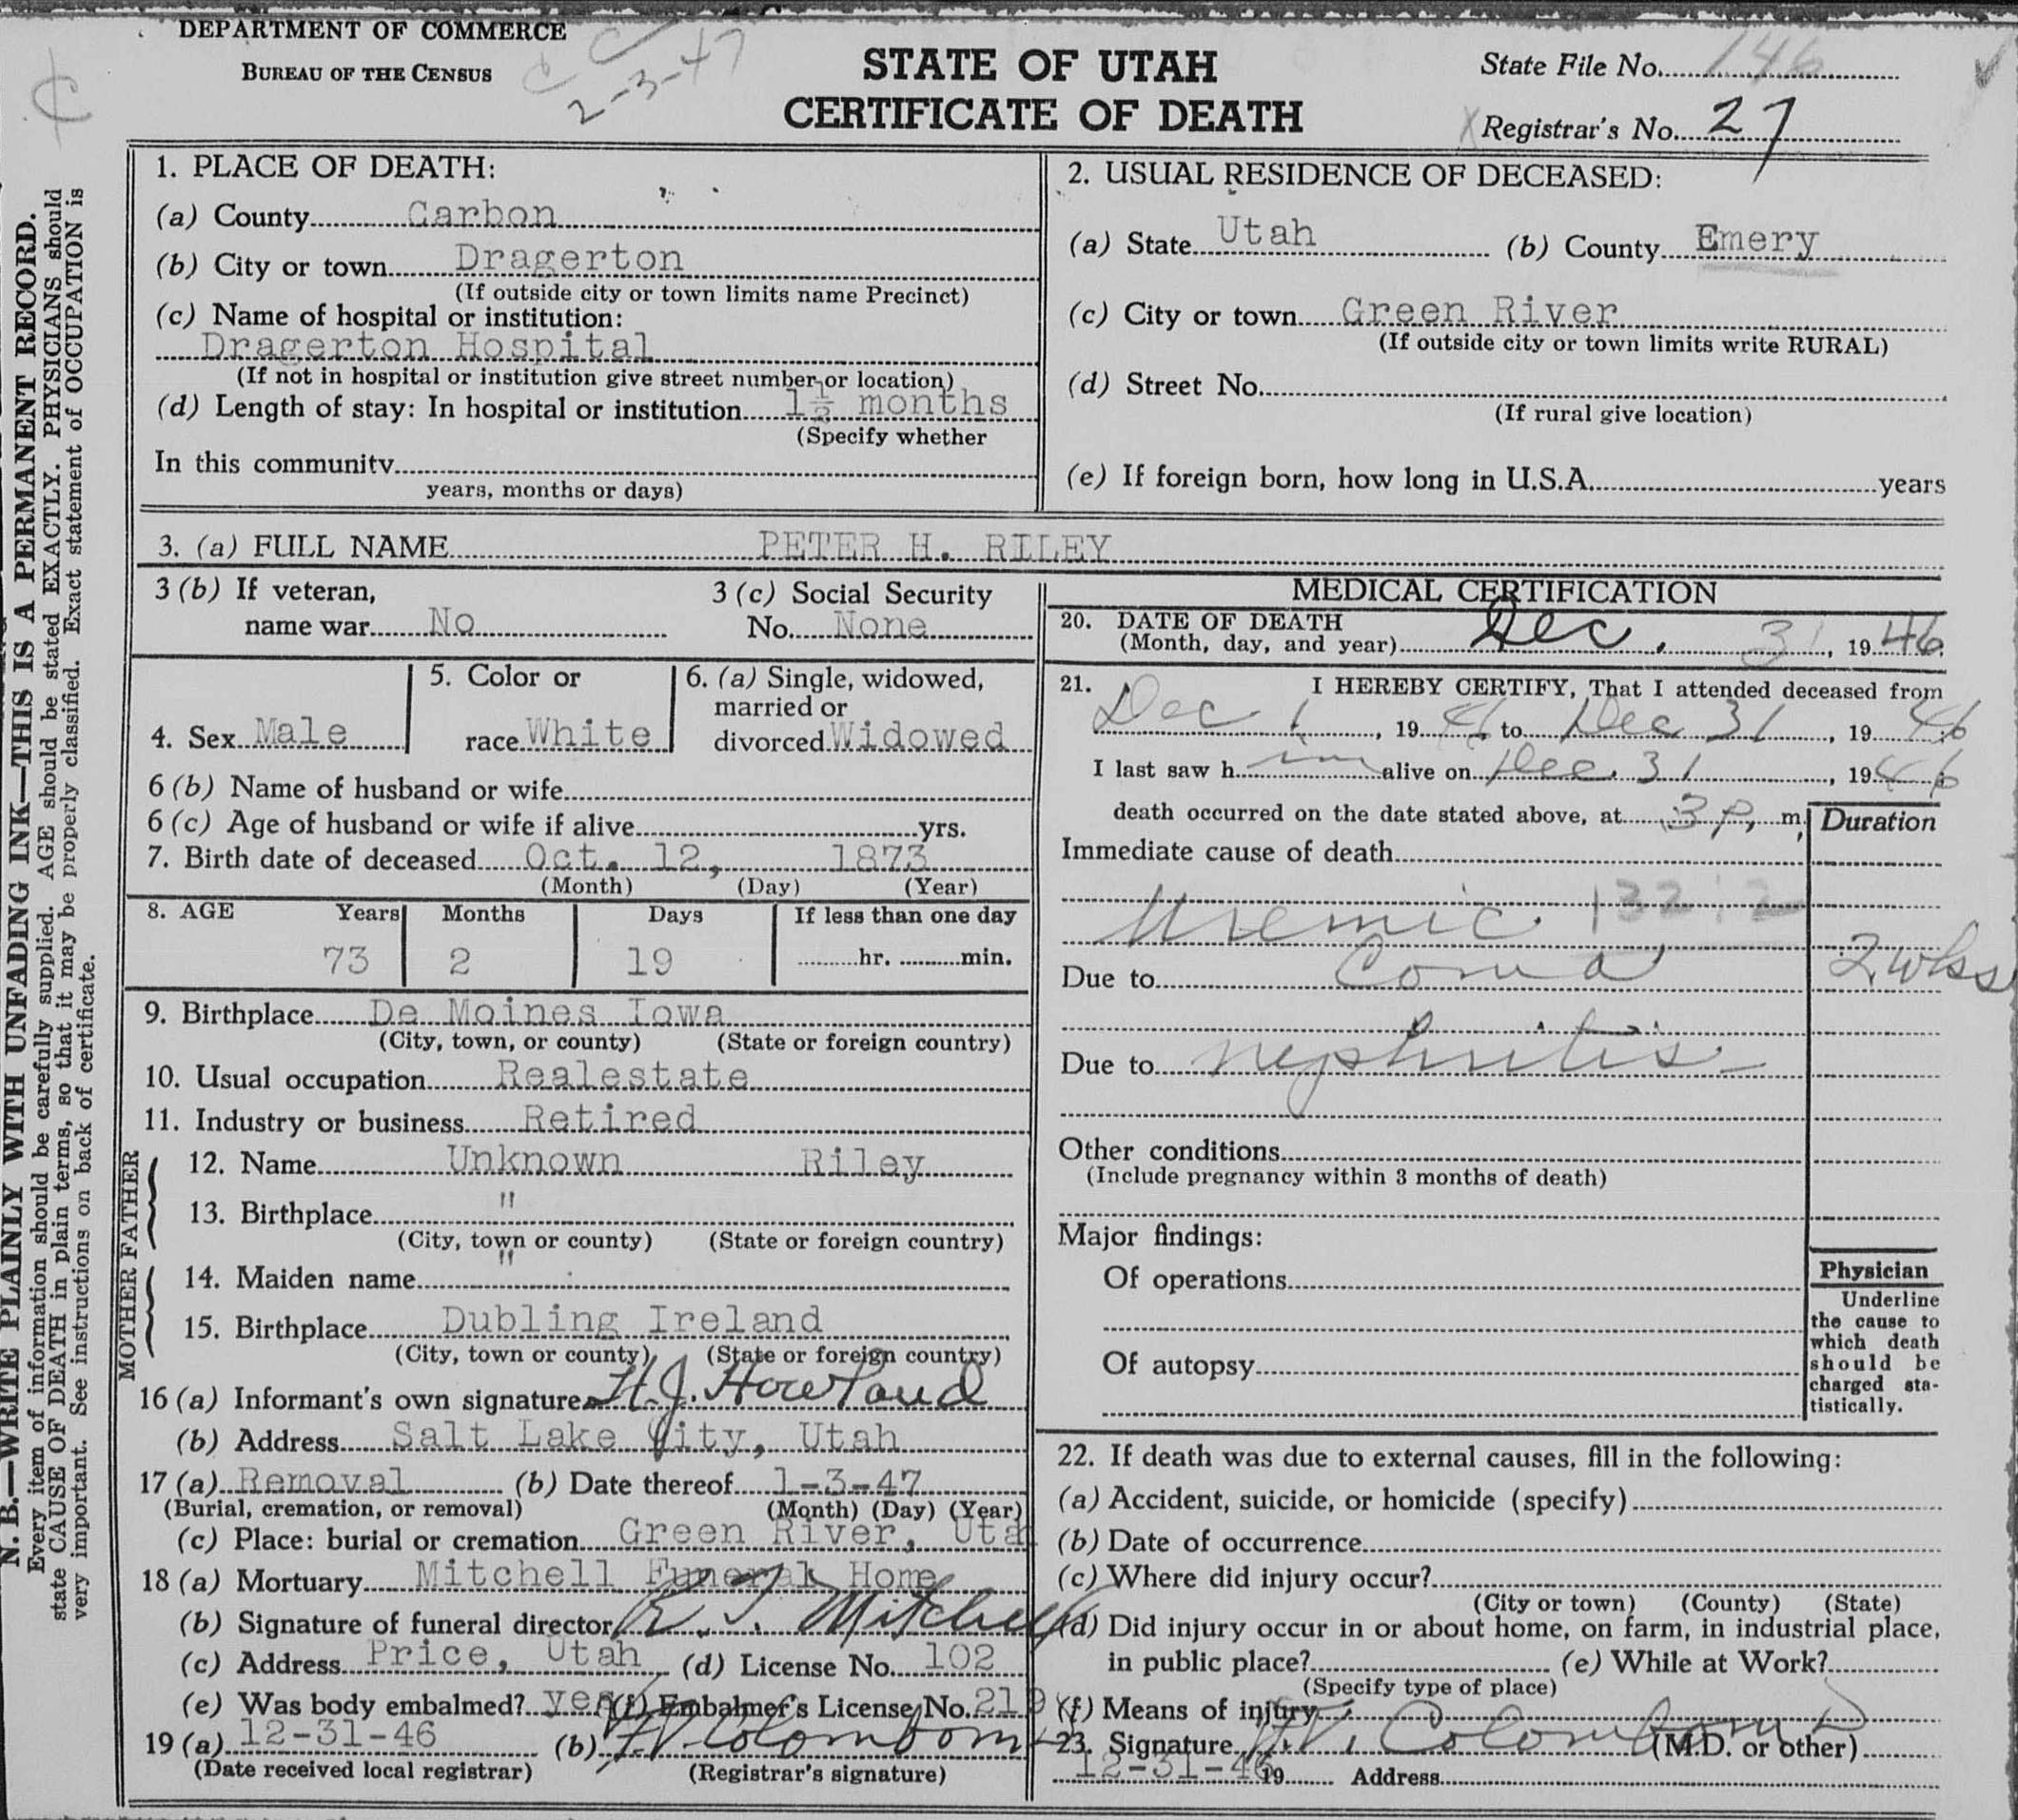 DEPARTMENT OF COMMERCE
BUREAU OF THE CENSUS
2-3-47
STATE OF UTAH
CERTIFICATE OF DEATH
State File No. 146
Registrar's No. 27
N. B.—WRITE PLAINLY WITH UNFADING INK—THIS IS A PERMANENT RECORD.
Every item of information should be carefully supplied. AGE should be stated EXACTLY. PHYSICIANS should
state CAUSE OF DEATH in plain terms, so that it may be properly classified. Exact statement of OCCUPATION is
very important. See instructions on back of certificate.
1. PLACE OF DEATH:
(a) County Carbon
(b) City or town Dragerton
(If outside city or town limits name Precinct)
(c) Name of hospital or institution:
Dragerton Hospital
(If not in hospital or institution give street number or location)
(d) Length of stay: In hospital or institution 1½ months
(Specify whether
In this community
years, months or days)
2. USUAL RESIDENCE OF DECEASED:
(a) State Utah (b) County Emery
(c) City or town Green River
(If outside city or town limits write RURAL)
(d) Street No.
(If rural give location)
(e) If foreign born, how long in U.S.A. years
3. (a) FULL NAME PETER H. RILEY
3 (b) If veteran, 3 (c) Social Security
name war No No. None
4. Sex Male
5. Color or
race White
6. (a) Single, widowed,
married or
divorced Widowed
6 (b) Name of husband or wife
6 (c) Age of husband or wife if alive yrs.
7. Birth date of deceased Oct. 12, 1873
(Month) (Day) (Year)
8. AGE Years Months Days If less than one day
73 2 19 hr. min.
9. Birthplace De Moines Iowa
(City, town, or county) (State or foreign country)
10. Usual occupation Realestate
11. Industry or business Retired
FATHER
12. Name Unknown Riley
13. Birthplace "
(City, town or county) (State or foreign country)
MOTHER
14. Maiden name "
15. Birthplace Dubling Ireland
(City, town or county) (State or foreign country)
16 (a) Informant's own signature H.J. Howland
(b) Address Salt Lake City, Utah
17 (a) Removal (b) Date thereof 1-3-47
(Burial, cremation, or removal) (Month) (Day) (Year)
(c) Place: burial or cremation Green River, Uta
18 (a) Mortuary Mitchell Funeral Home
(b) Signature of funeral director R. T. Mitchell
(c) Address Price, Utah (d) License No. 102
(e) Was body embalmed? yes (f) Embalmer's License No. 219
19 (a) 12-31-46 (b) Colombo
(Date received local registrar) (Registrar's signature)
MEDICAL CERTIFICATION
20. DATE OF DEATH
(Month, day, and year) Dec. 31, 1946
21. I HEREBY CERTIFY, That I attended deceased from
Dec 1, 1946 to Dec 31, 1946
I last saw him alive on Dec. 31, 1946
death occurred on the date stated above, at 3 P. m.
Duration
Immediate cause of death
Uremic 132:2
Due to Coma 2 wks
Due to nephritis
Other conditions
(Include pregnancy within 3 months of death)
Major findings:
Of operations
Of autopsy
Physician
Underline
the cause to
which death
should be
charged sta-
tistically.
22. If death was due to external causes, fill in the following:
(a) Accident, suicide, or homicide (specify)
(b) Date of occurrence
(c) Where did injury occur?
(City or town) (County) (State)
(d) Did injury occur in or about home, on farm, in industrial place,
in public place? (e) While at Work?
(Specify type of place)
(f) Means of injury
23. Signature Colombo M D (M.D. or other)
12-31-46 19 Address